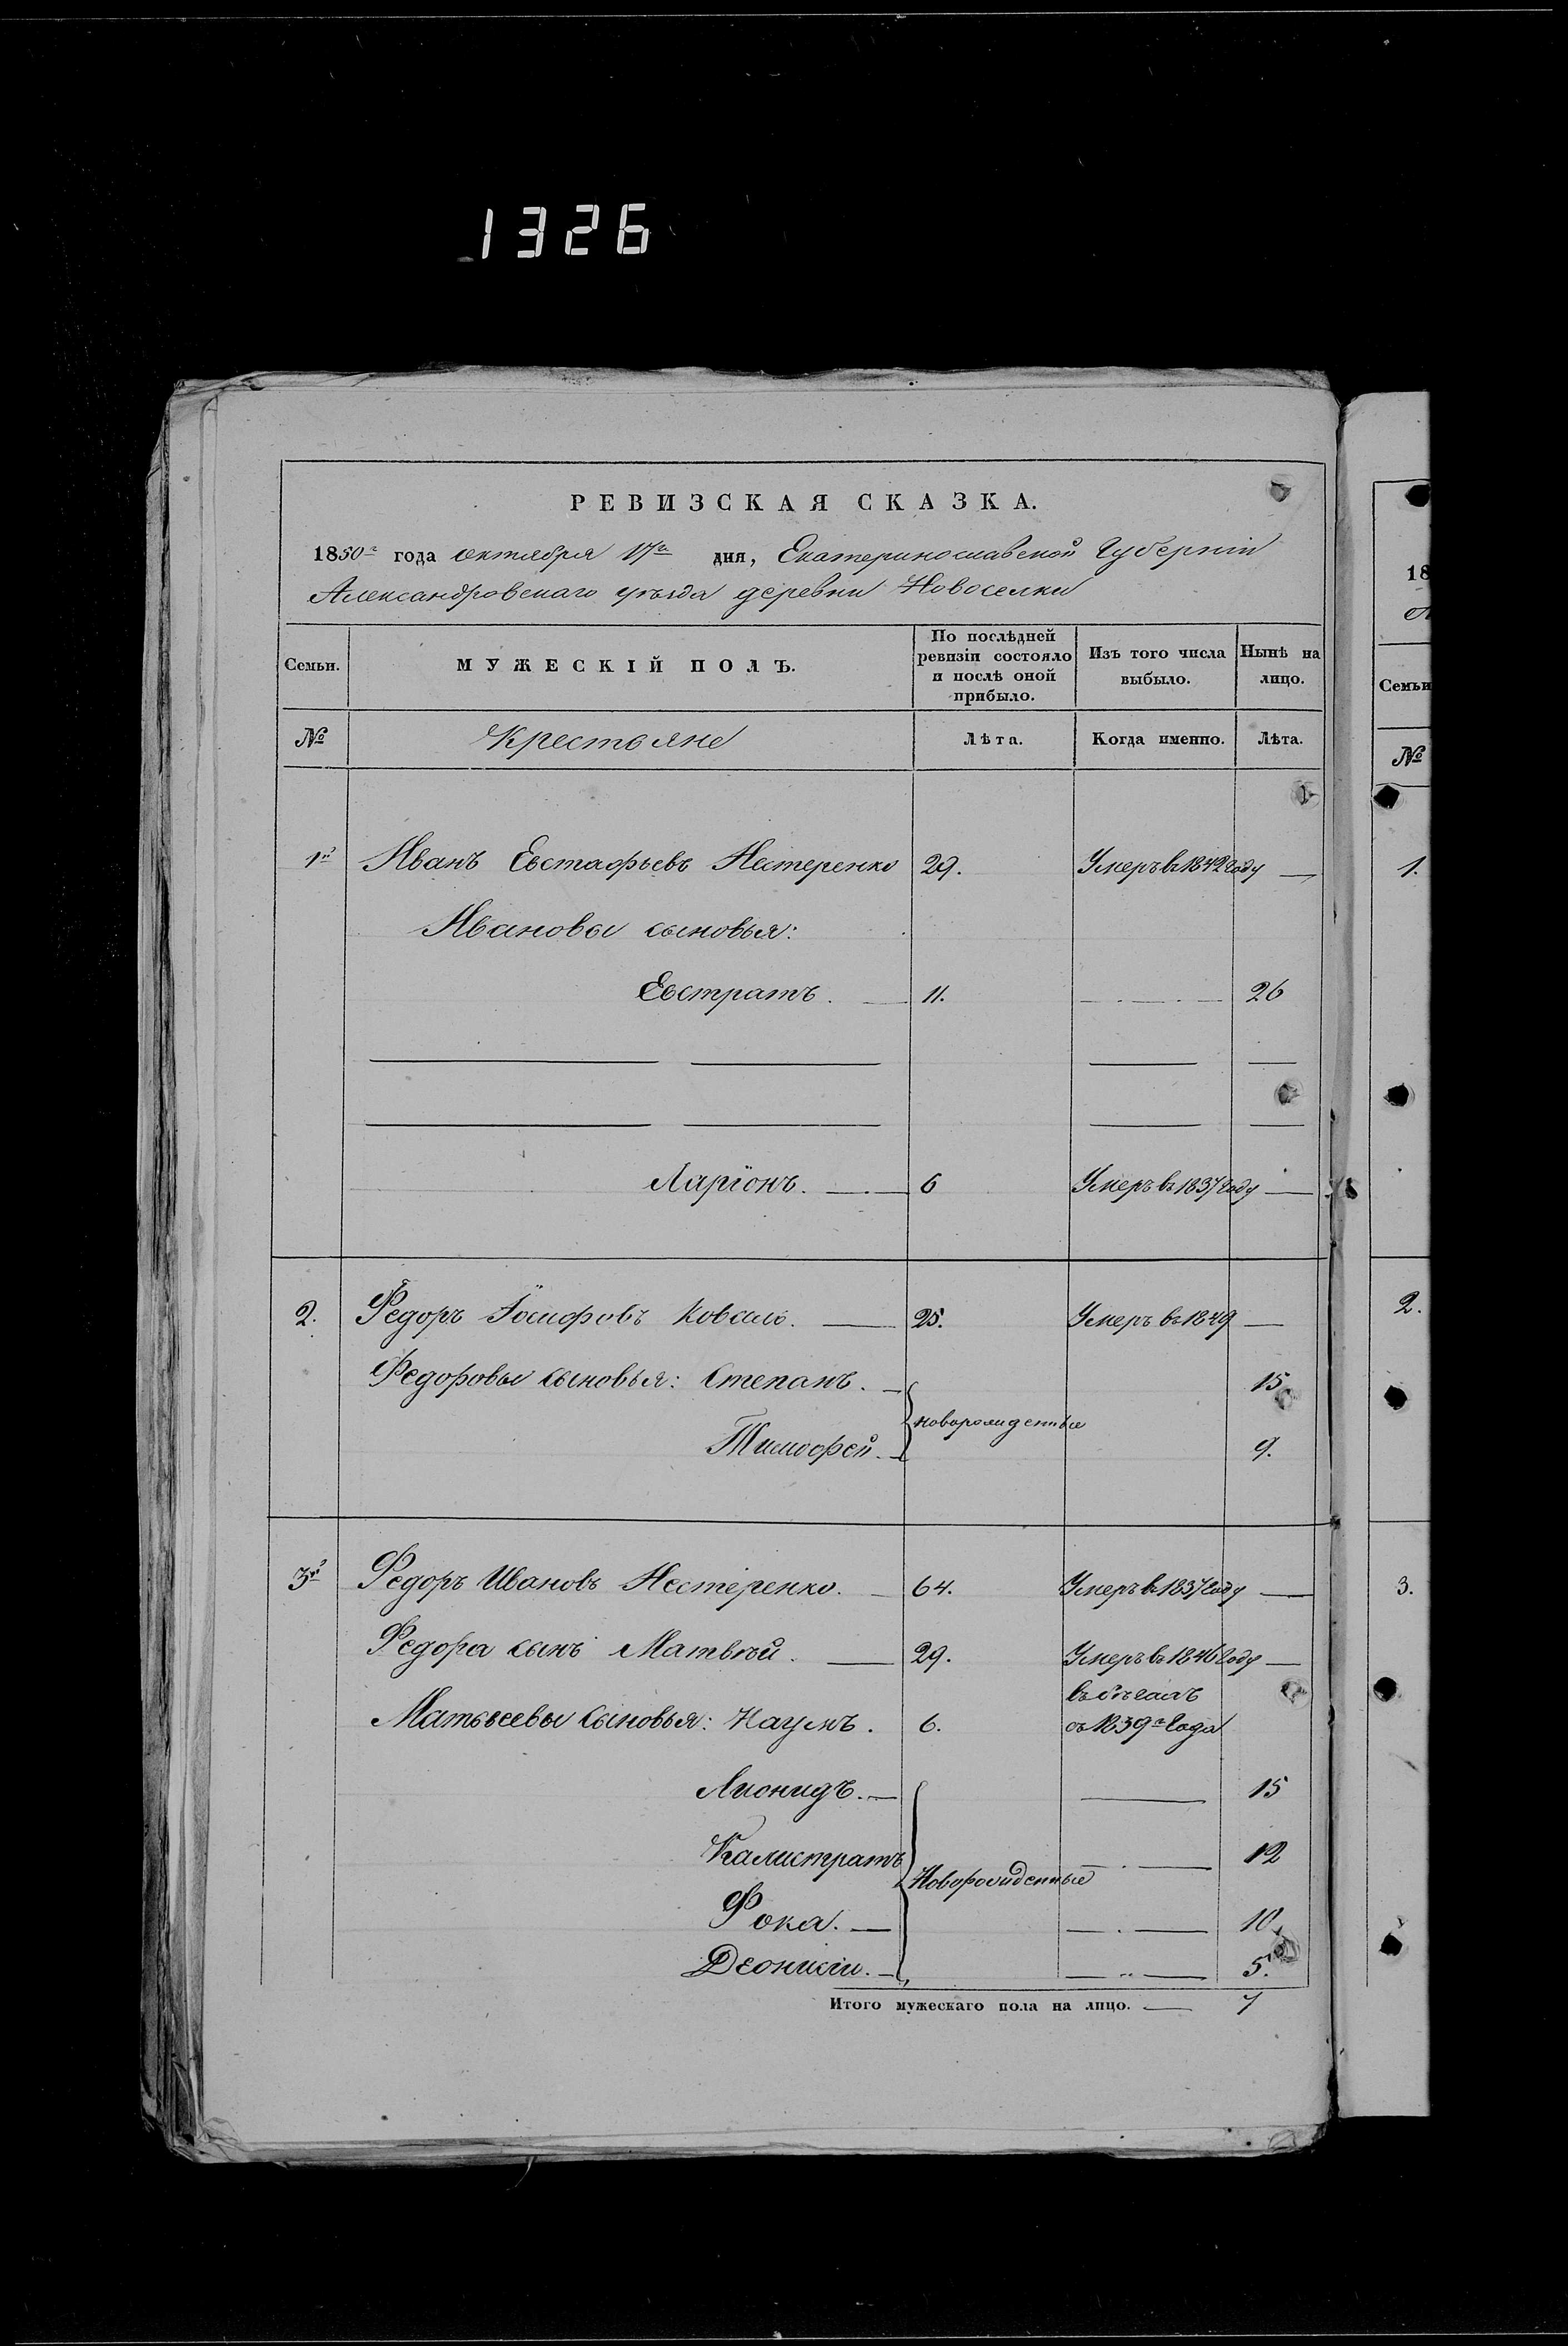 1326
РЕВИЗСКАЯ СКАЗКА.
1850г года октября 17го дня, Екатеринославской Губерніи
Александровскаго уѣзда деревни Новоселки
Семьи. МУЖЕСКІЙ ПОЛЪ. По послѣдней ревизіи состояло и послѣ оной прибыло. Изъ того числа выбыло. Нынѣ на лицо.
№ Крестьяне Лѣта. Когда именно. Лѣта.
1й Иванъ Евстафьевъ Нестеренко 29. Умеръ въ 1842 году —
Ивановы сыновья:
Евстратъ. — 11. — 26
Ларіонъ. — 6 Умеръ въ 1837 году —
2. Федоръ Іосифовъ Коваль. — 25. Умеръ въ 1849 —
Федоровы сыновья: Степанъ. — 15
новорожденные
Тимофей. — 9.
3й Федоръ Ивановъ Нестеренко. — 64. Умеръ въ 1837 году —
Федора сынъ Матвѣй. — 29. Умеръ въ 1846 году —
въ бѣгахъ
Матвѣевы сыновья: Наумъ. 6. съ 1839г года
Лионидъ. — 15
Калистратъ — 12
Новорожденные
Фока. — 10
Деонисіи. — 5.
Итого мужескаго пола на лицо. — 7
18
Семьи
№
1.
2.
3.